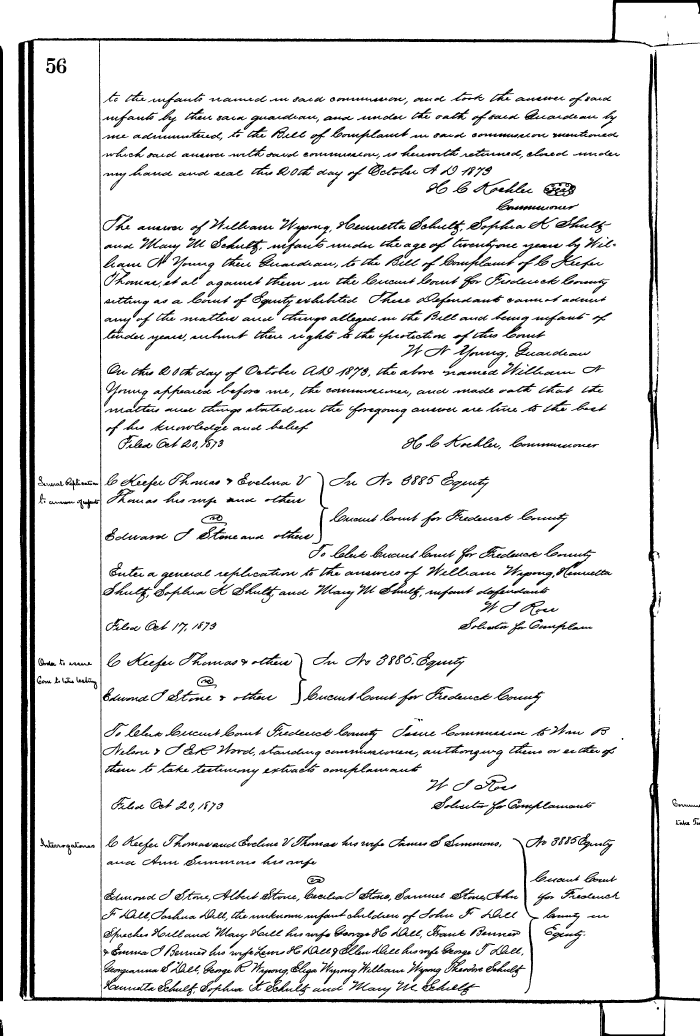 56
to the infants named in said commission, and took the answer of said
infants by their said guardian, and under the oath of said Guardian by
me administered, to the Bill of Complaint in said commission mentioned
which said answer with said commission, is herewith returned, closed under
my hand and seal this 20th day of October A D 1873
H C Koehler Seal
Commissioner
The answer of William Wysong, Henrietta Schultz, Sophia K Shultz
and Mary M Schultz, infants under the age of twenty one years by Wil-
liam N Young their Guardian, to the Bill of Complaint of C Keefer
Thomas, et al against them in the Circuit Court for Frederick County
sitting as a Court of Equity exhibited These Defendants cannot admit
any of the matters and things alleged in the Bill and being infants of
tender years, submit their rights to the protection of this Court
W N Young, Guardian
On this 20th day of October A.D 1873, the above named William N
Young appeared before me, the commissioner, and made oath that the
matters and things stated in the foregoing answer are true to the best
of his knowledge and belief
Filed Oct 20, 1873 H C Koehler, Commissioner
General Replication
to answer of infants
C Keefer Thomas & Evelina V
Thomas his wife and others
vs
Edward I Stone and others
In No 3885 Equity
Circuit Court for Frederick County
To Clerk Circuit Court for Frederick County
Enter a general replication to the answers of William Wysong, Henrietta
Shultz, Sophia K Shultz and Mary M Shultz, infant defendants
W I Ross
Filed Oct 17, 1873 Solicitor for Complain
Order to issue
Com to take testimy
C Keefer Thomas & others
vs
Edward I Stone & others
In No 3885 Equity
Circuit Court for Frederick County
To Clerk Circuit Court Frederick County Issue Commission to Wm B
Nelson & I E R Wood, standing commissioners, authorizing them or either of
them to take testimony extracts complainants
W I Ross
Filed Oct 20, 1873 Solicitor for Complainants
Interrogatories
C Keefer Thomas and Evelina V Thomas his wife James S Simmons,
and Ann Simmons his wife
vs
Edward I Stone, Albert Stone, Cecilia I Stone, Samuel Stone, John
F Dill, Joshua Dill, the unknown infant children of John F Dill
Speches Hill and Mary Hill his wife George H Dill, Frank Bennes
& Emma I Bennes his wife Lewis H Dill & Ellen Dill his wife George T Dill,
Georgianna S Dill, George R Wysong, Eliza Wysong William Wysong Theodore Schultz
Henrietta Schultz, Sophia K Schultz and Mary M Schultz
No 3885 Equity
Circuit Court
for Frederick
County in
Equity
take